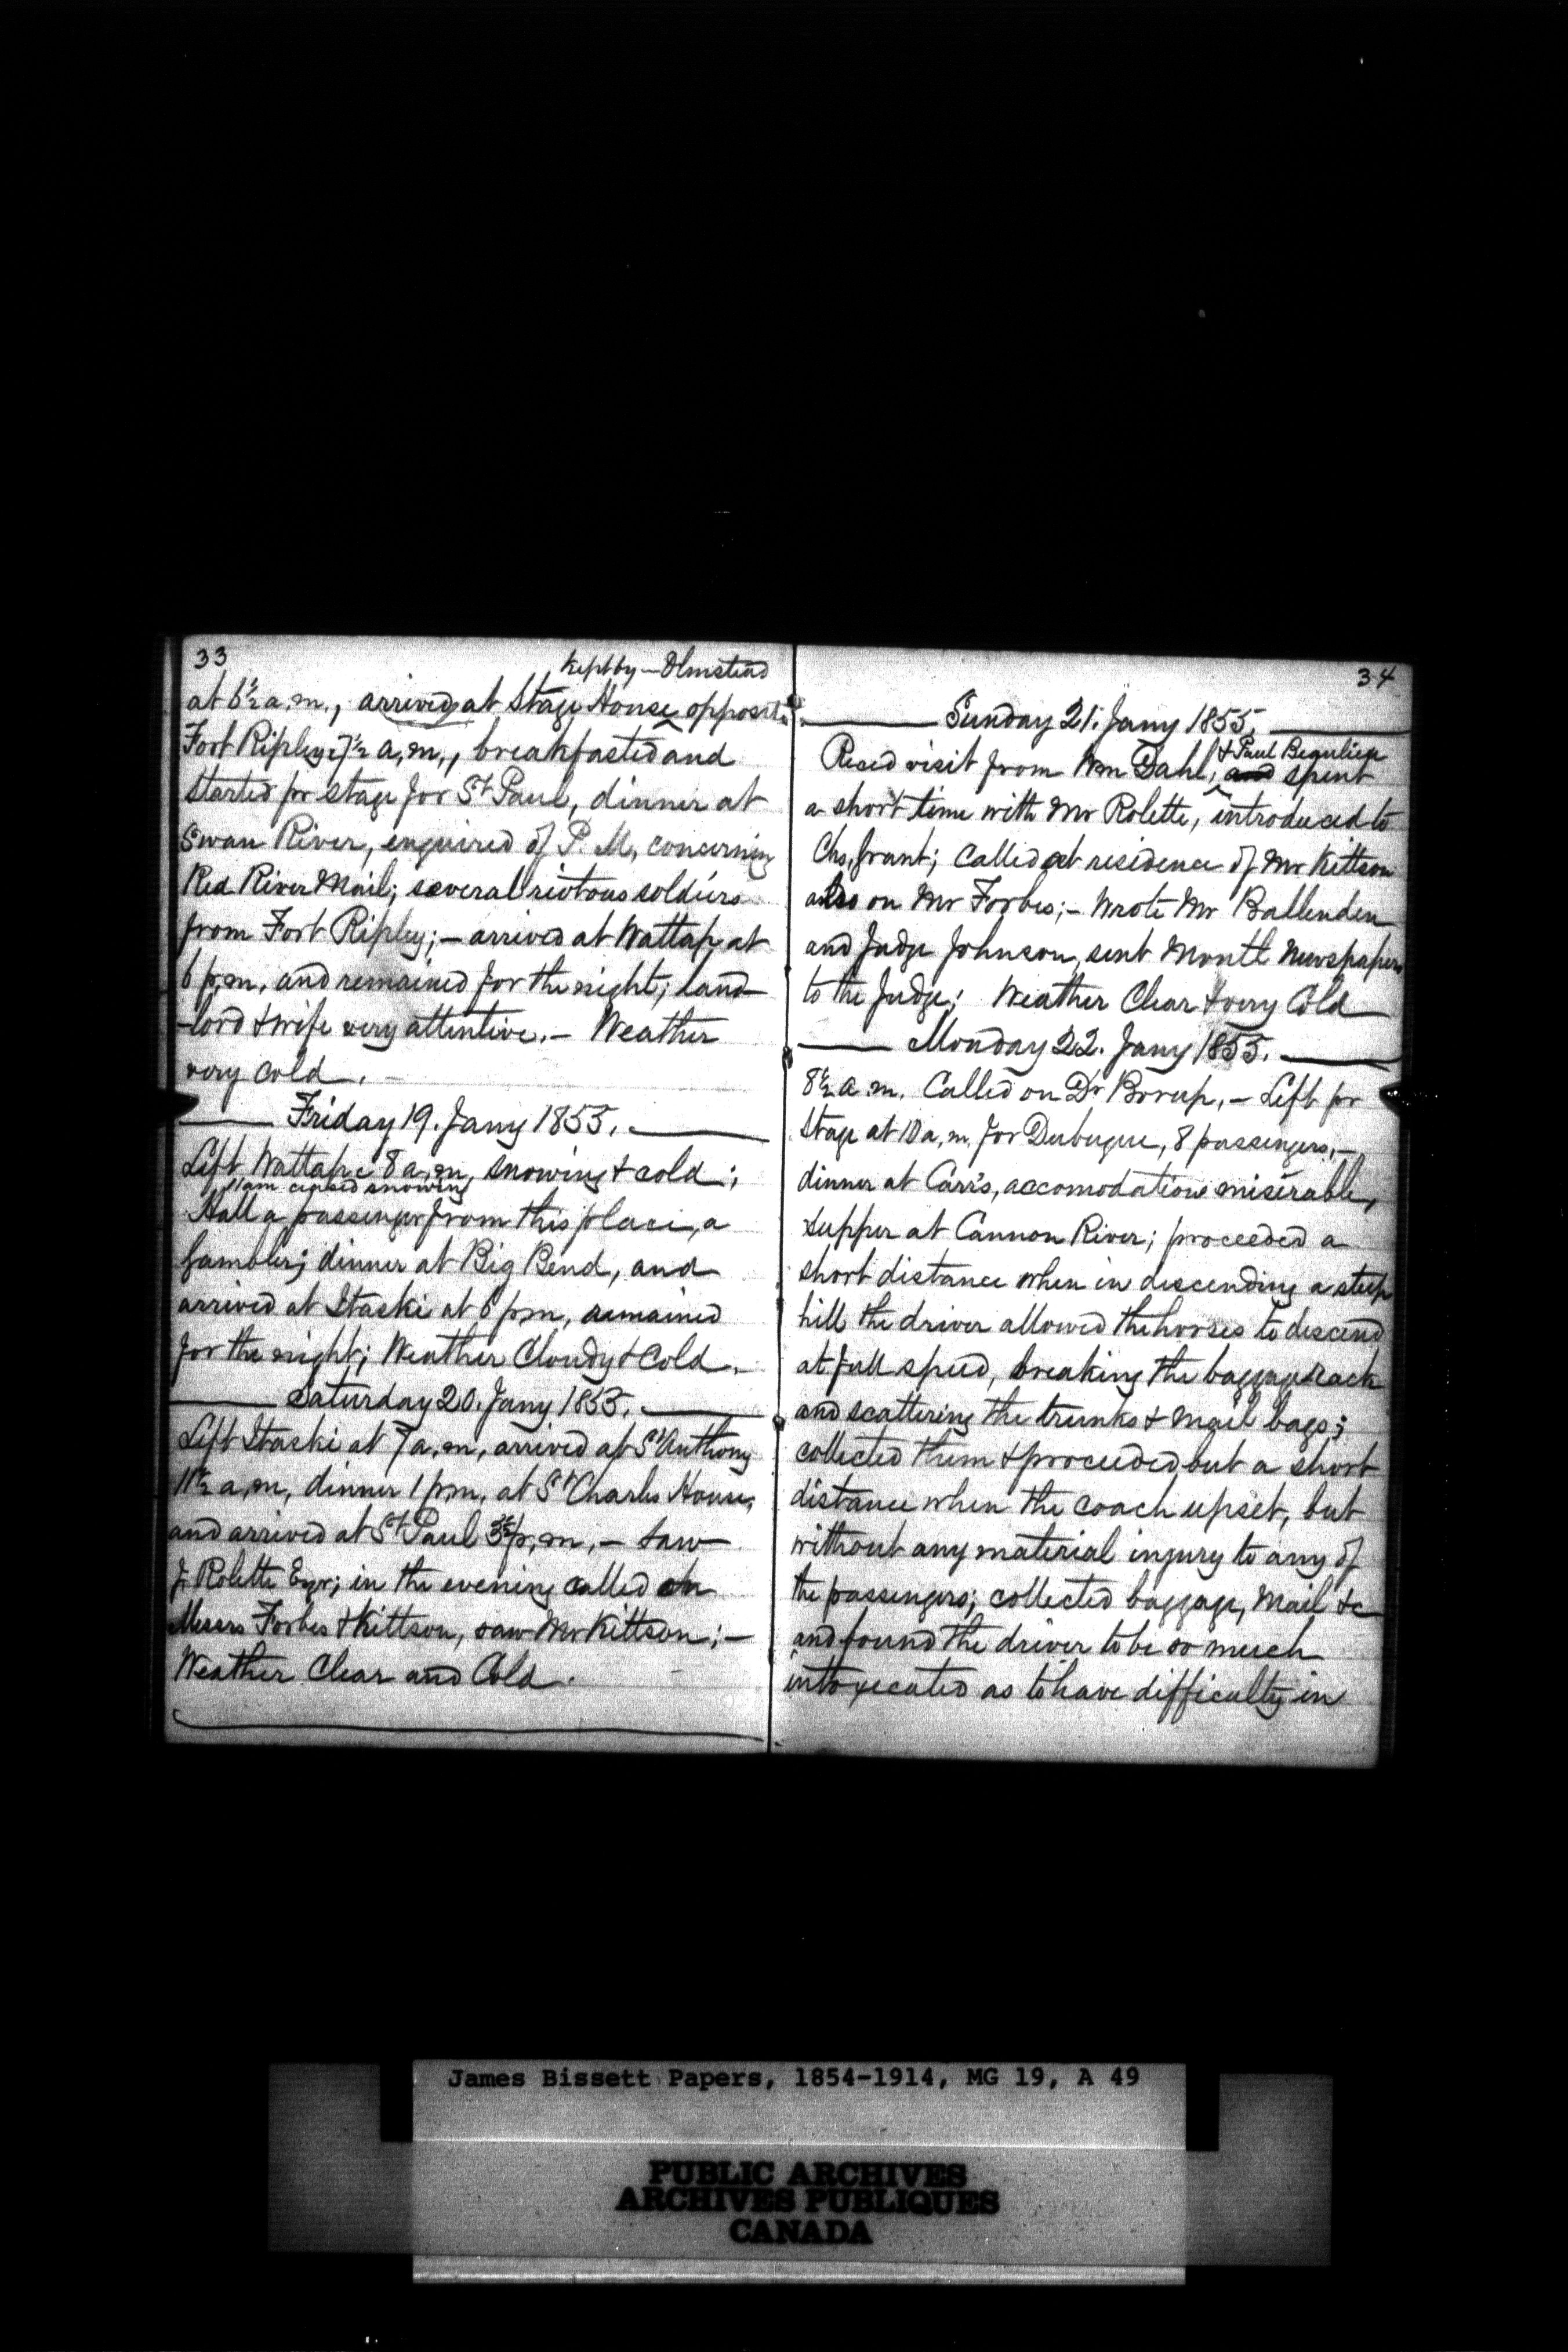 33
kept by — Olmstead
at 6½ a.m., arrived at Stage House opposite
Fort Ripley 7½ a.m., breakfasted and
started pr stage for St Paul, dinner at
Swan River, enquired of P. M. concerning
Red River Mail; several riotous soldiers
from Fort Ripley; — arrived at Wattap at
6 p.m. and remained for the night; land-
-lord & wife very attentive. — Weather
very cold. —
Friday 19. Jany 1855.
Left Wattap 8 a.m. snowing & cold;
11 am ceased snowing
Hall a passenger from this place, a
Gambler; dinner at Big Bend, and
arrived at Itaski at 6 p.m, remained
for the night; Weather Cloudy & Cold.
Saturday 20. Jany 1855.
Left Itaski at 7 a.m, arrived at St Anthony
11½ a.m, dinner 1 p.m. at St Charles House,
and arrived at St Paul 3½ p.m. — Saw
J. Rolette Esqr; in the evening called on
Messrs Forbes & Kittson, saw Mr Kittson; —
Weather Clear and Cold.
34
Sunday 21. Jany 1855.
& Paul Beauliep
Reced visit from Wm Dahl, and spent
a short time with Mr Rolette, introduced to
Chs. Grant; Called at residence of Mr Kittson
also on Mr Forbes; — Wrote Mr Ballenden
and Judge Johnson, sent Montl Newspapers
to the Judge; Weather Clear & very Cold
Monday 22. Jany 1855.
8½ a.m. Called on Dr Borup, — Left pr
Stage at 10 a.m. for Dubuque, 8 passengers, —
dinner at Carr's, accomodation miserable,
supper at Cannon River; proceeded a
short distance when in descending a steep
hill the driver allowed the horses to descend
at full speed, breaking the baggage rack
and scattering the trunks & mail bags;
collected them & proceeded but a short
distance when the coach upset, but
without any material injury to any of
the passengers; collected baggage, Mail &c
and found the driver to be so much
intoxecated as to have difficulty in
James Bissett Papers, 1854-1914, MG 19, A 49
PUBLIC ARCHIVES
ARCHIVES PUBLIQUES
CANADA